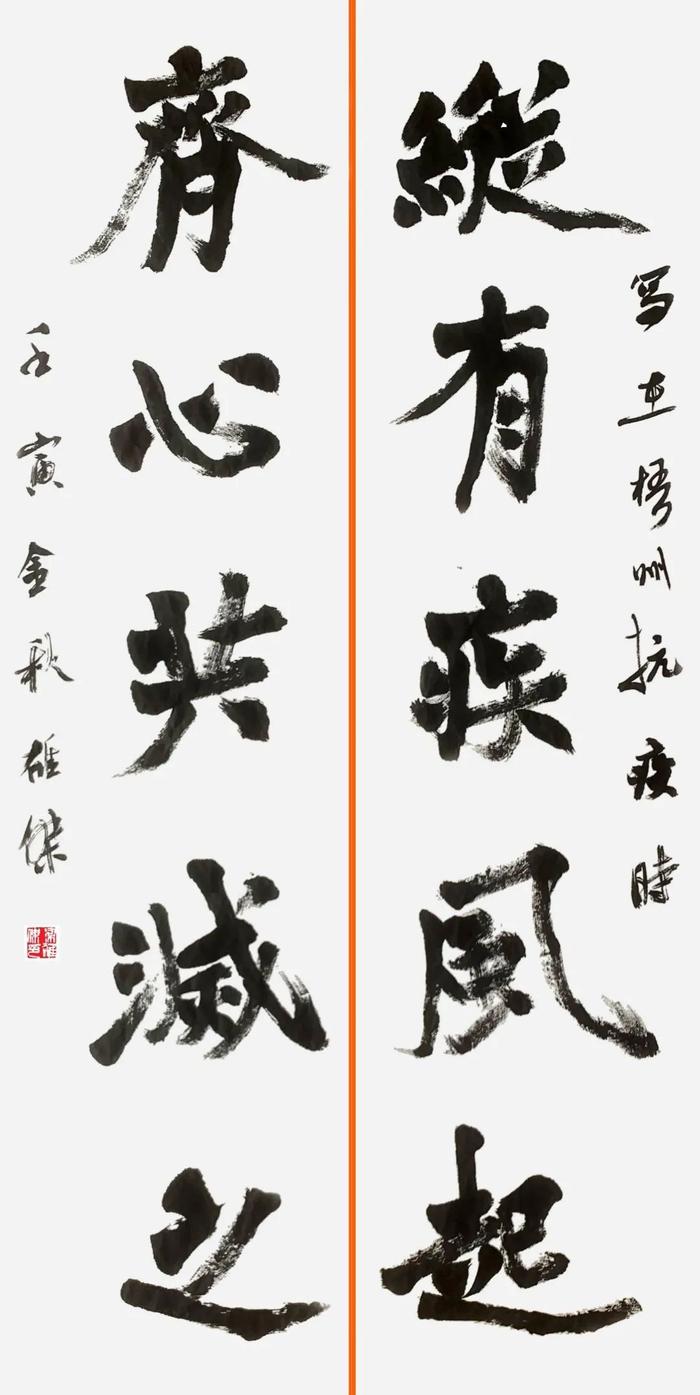 写在梧州抗疫時
縱有疾風起
齊心共滅之
壬寅金秋雄傑